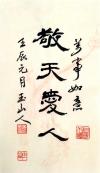 萬事如意
敬天愛人
壬辰元月玉山人